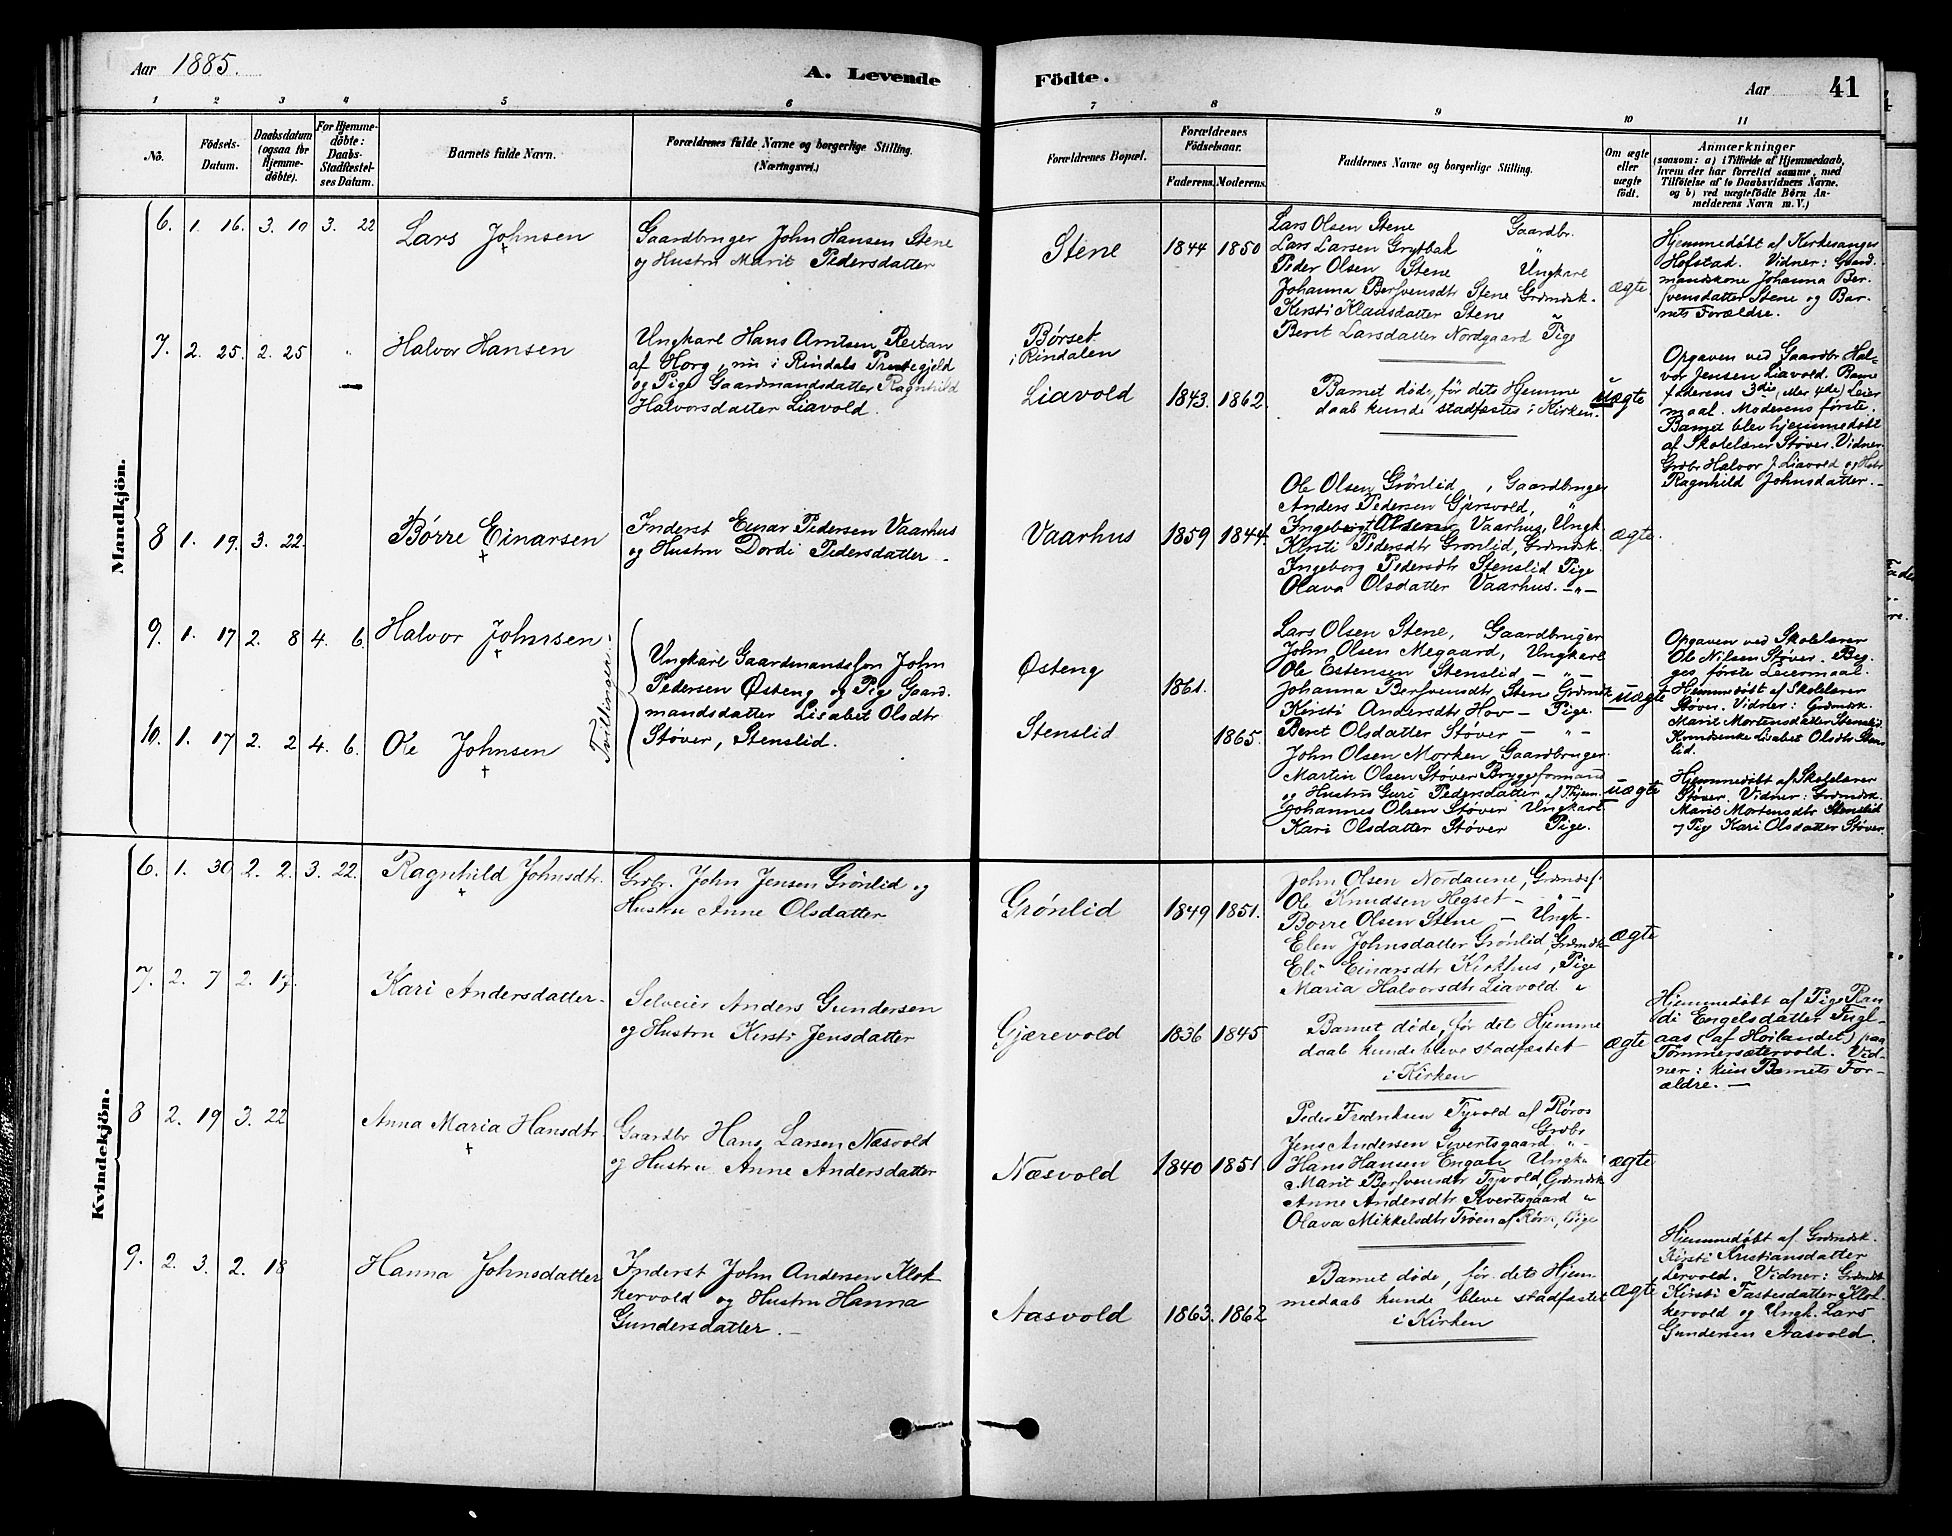 Aar 1885.
A. Levende
Födte.
Aar
41
1 2 3 4 5 6 7 8 9 10 11
No.
Födsels-
Datum.
Daabsdatum
(ogsaa for
Hjemme-
döbte).
For Hjemme-
döbte:
Daabs-
Stadfæstel-
ses Datum.
Barnets fulde Navn.
Forældrenes fulde Navne og borgerlige Stilling.
(Næringsvei.)
Forældrenes Bopæl.
Forældrenes
Födselsaar.
Faderens. Moderens.
Faddernes Navne og borgerlige Stilling.
Om ægte
eller
uægte
födt.
Anmærkninger
(saasom: a) i Tilfælde af Hjemmedaab,
hvem der har forrettet samme, med
Tilföielse af to Daabsvidners Navne,
og b) ved uægtefödte Börn An-
melderens Navn m. V.)
Mandkjön.
6. 1. 16. 3. 10 3. 22
Lars Johnsen
Gaardbruger John Hansen Stene
og Hustru Marit Pedersdatter
Stene
1844 1850
Lars Olsen Stene Gaardbr.
Lars Larsen Grytbak "
Peder Olsen Stene Ungkarl
Johanna Bersvensdtr Stene Grdmdsk.
Kirsti Klausdatter Stene "
Beret Larsdatter Nordgaard Pige
ægte
Hjemmedøbt af Kirkesanger
Hofstad. Vidner: Gaard-
mandskone Johanna Ber-
svensdatter Stene og Bar-
nets Forældre.
7. 2. 25. 2. 25 "
Halvor Hansen
Ungkarl Hans Arntsen Reitan
af Horg, nu i Rindals Præstegjeld
og Pige Gaardmandsdatter Ragnhild
Halvorsdatter Liavold.
Børset
i Rindalen
Liavold
1843. 1862.
Barnet døde, før dets Hjemme
daab kunde stadfæstes i Kirken.
uægte
Opgaven ved Gaardbr Hal-
vor Jensen Liavold. Barne
faderens 3die (eller 4de) Leier
maal. Moderens første.
Barnet blev hjemmedøbt
af Skolelærer Støver. Vidner
Grdbr Halvor J. Liavold og Hstr
Ragnhild Johnsdatter.
8 1. 19. 3. 22.
Børre Einarsen
Inderst Einar Pedersen Vaarhus
og Hustru Dordi Pedersdatter
Vaarhus
1859 1844.
Ole Olsen Grønlid, Gaardbruger
Anders Pedersen Gjersvold, "
Ingebrigt Olsen Vaarhus, Ungk.
Kirsti Pedersdtr Grønlid, Grdmdsk.
Ingeborg Pedersdtr Stenslid Pige
Olava Olsdatter Vaarhus. -"-
ægte.
9. 1. 17 2. 8 4. 6.
Halvor Johnsen
Tvillinger.
Ungkarl Gaardmandssøn John
Pedersen Østeng og Pig Gaard.
mandsdatter Lisabet Olsdtr
Støver, Stenslid.
Østeng
1861.
Lars Olsen Stene, Gaardbruger
John Olsen Megaard, Ungkarl
Ole Estensen Stenslid - " -
Johanna Bersvensdtr Stene Grdmdsk
Kirsti Andersdtr Hov - Pige.
Beret Olsdatter Støver - " -
uægte
Opgaven ved Skolelærer
Ole Nilsen Støver. Beg-
ges første Leiermaal.
Hjemmedøbt af Skolelærer
Støver. Vidner: Grdmdsk.
Marit Mortensdatter Stenslid
Kvindsenke Lisabet Olsdtr Stens
lid.
10. 1. 17 2. 2 4. 6.
Ole Johnsen
Stenslid
1865.
John Olsen Morken Gaardbruger
Martin Olsen Støver Bryggeformand
og Hustru Guri Pedersdatter af Thjem.
Johannes Olsen Støver Ungkarl
Kari Olsdatter Støver Pige.
uægte
Hjemmedøbt af Skolelærer
Støver. Vidner: Grdmdsk.
Marit Mortensdtr Stenslid
og Pig Kari Olsdatter Støver
Kvindekjön.
6. 1. 30 2. 2. 3. 22.
Ragnhild Johnsdtr.
Grdbr. John Jensen Grønlid og
Hustru Anne Olsdatter
Grønlid
1849 1851.
John Olsen Nordaune, Grdmdsf.
Ole Knudsen Hegset - " -
Børre Olsen Stene - Ungk.
Elen Johnsdatter Grønlid, Grdmdsk
Eli Einarsdtr Kirkhus, Pige
Maria Halvorsdtr Liavold "
ægte
7. 2. 7 2. 17.
Kari Andersdatter
Selveier Anders Gundersen
og Hustru Kirsti Jensdatter
Gjærevold
1836 1845
Barnet døde, før dets Hjemme
daab kunde bleve stadfæstet
i Kirken
ægte
Hjemmedøbt af Pige Ran
di Engelsdatter Fugl-
aas (af Høilandet) paa
Tømmersætervold. Vid-
ner: kun Barnets For-
ældre.
8 2. 19 3. 22
Anna Maria Hansdtr
Gaardbr Hans Larsen Næsvold
og Hustru Anne Andersdatter
Næsvold
1840 1851
Peder Fredriksen Tyvold af Røros
Grdbr
Jens Andersen Sivertsgaard "
Hans Hansen Engan Ungk
Marit Bersvensdtr Tyvold, Grdmdsk
Anne Andersdtr Sivertsgaard "
Olava Mikkelsdtr Trøen af Røros, Pige
ægte
9. 2. 3. 2. 18
Hanna Johnsdatter
Inderst John Andersen Klok
kervold og Hustru Hanna
Gundersdatter.
Aasvold
1863. 1862
Barnet døde, før dets Hjem
medaab kunde bleve stadfæstet
i Kirken
ægte
Hjemmedøbt af Grdmdsk.
Kirsti Kristiansdatter
kervold. Vidner: Grdmdsk
Kirsti Tastesdatter Klok
kervold og Ungk. Lars
Gundersen Aasvold.